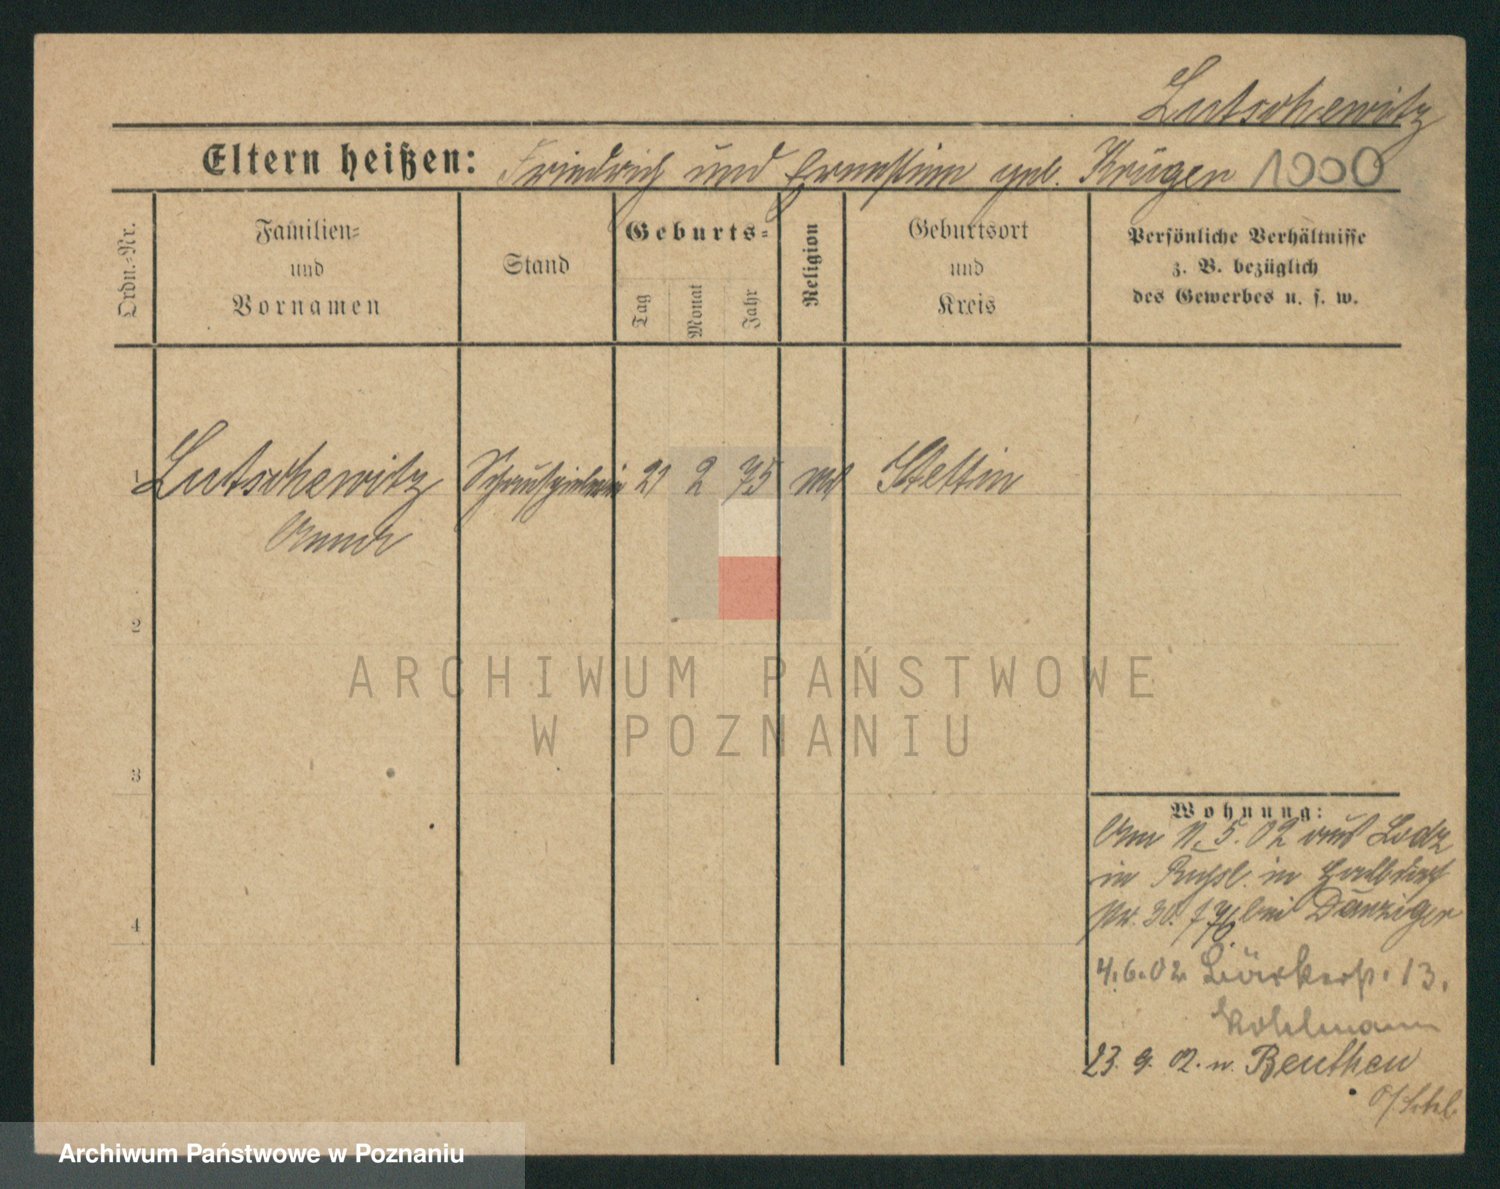 Lutschewitz
Eltern heißen: Friedrich und Ernestine geb. Krüger 1000
Ordn.-Nr.
Familien-
und
Vornamen
Stand
Geburts-
Tag
Monat
Jahr
Religion
Geburtsort
und
Kreis
Persönliche Verhältnisse
z. B. bezüglich
des Gewerbes u. s. w.
1 Lutschewitz Schauspielerin 21 2 75 Stettin
Anna
2
3
4
Wohnung:
Am 11.5.02 aus Lodz
in Russl. in Halbdorf
30. bei Danziger
4.6.02 Bäckerstr. 13.
Kohlmann
23. 9. 02. n. Beuthen
O/Schl.
ARCHIWUM PAŃSTWOWE
W POZNANIU
Archiwum Państwowe w Poznaniu